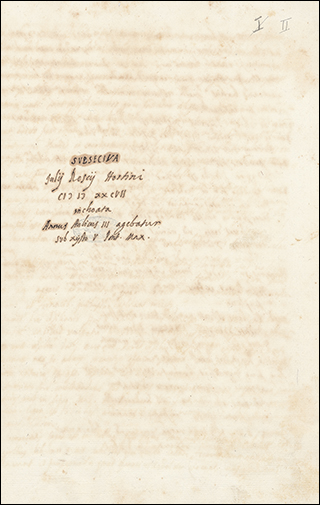 I II
SVBSECIVA
Julij Roscij Hortini
CIↃ IↃ XXCVII
inchoata
Annus Aetatis III agebatur
sub Xysto V Pont. Max.